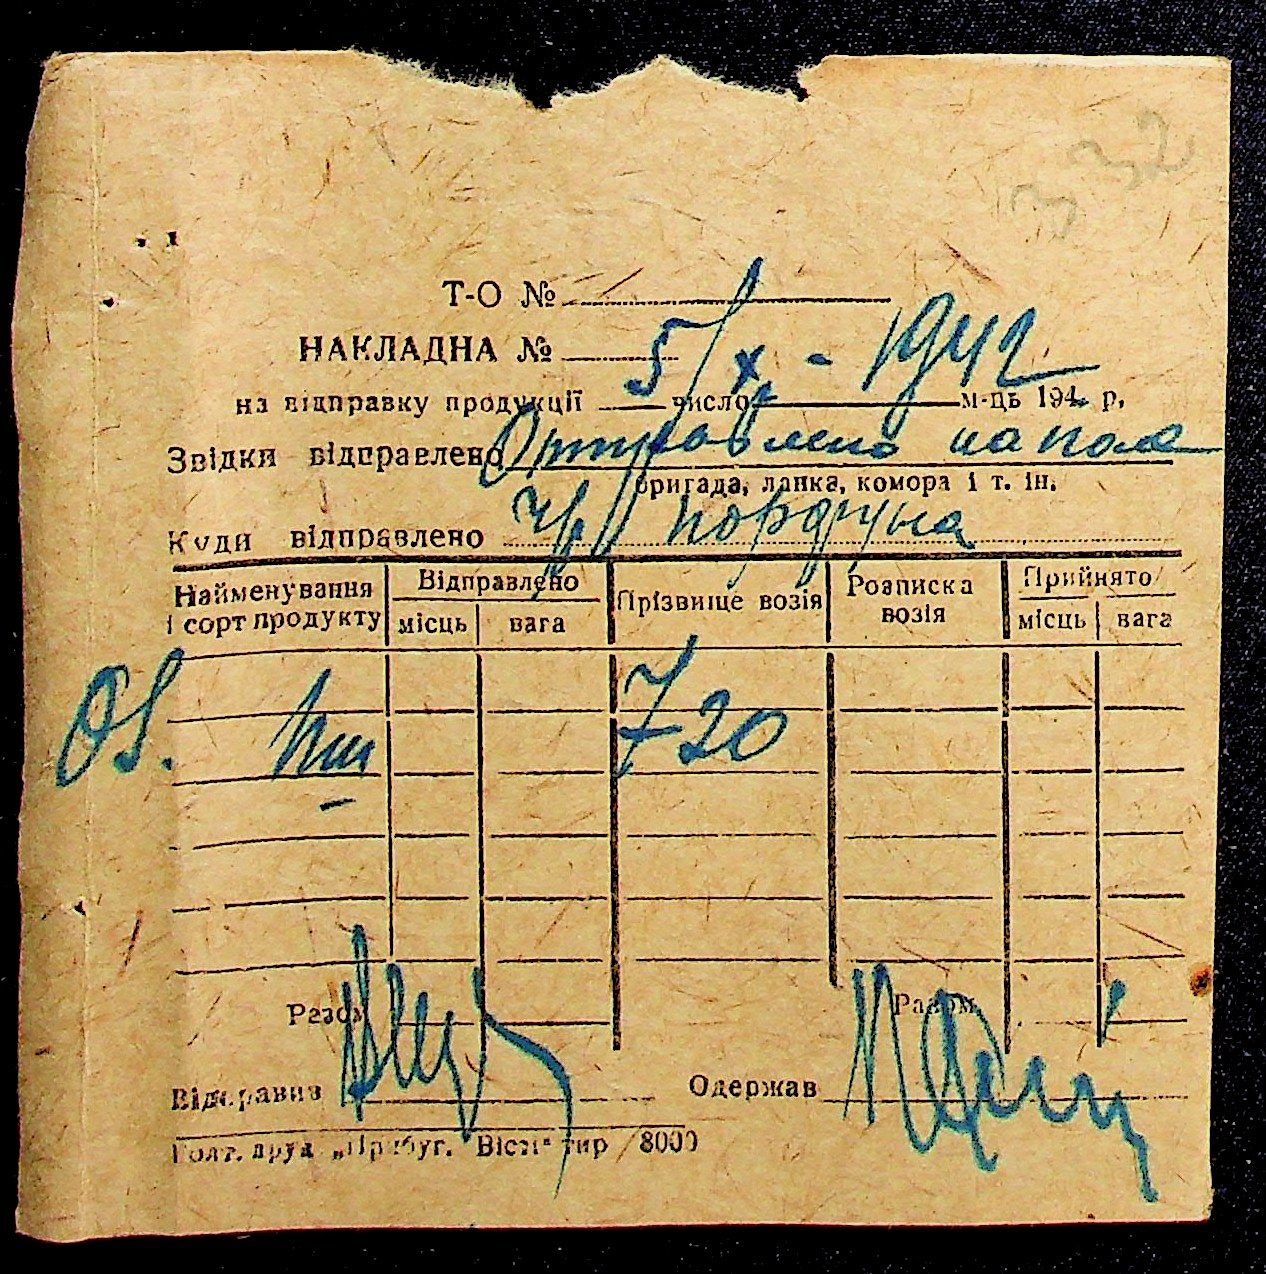 332
Т-О №
НАКЛАДНА № 5/X - 1942
на відправку продукції число м-ць 194 р.
Звідки відправлено Отправлено на поле
бригада, ланка, комора і т. ін.
Куди відправлено
Найменування і сорт продукту Відправлено місць вага Прізвище возія Розписка возія Прийнято місць вага
720
Разом Разом
Відправив Одержав
Голт. друк. „Прибуг. Вісті“ тир 8000